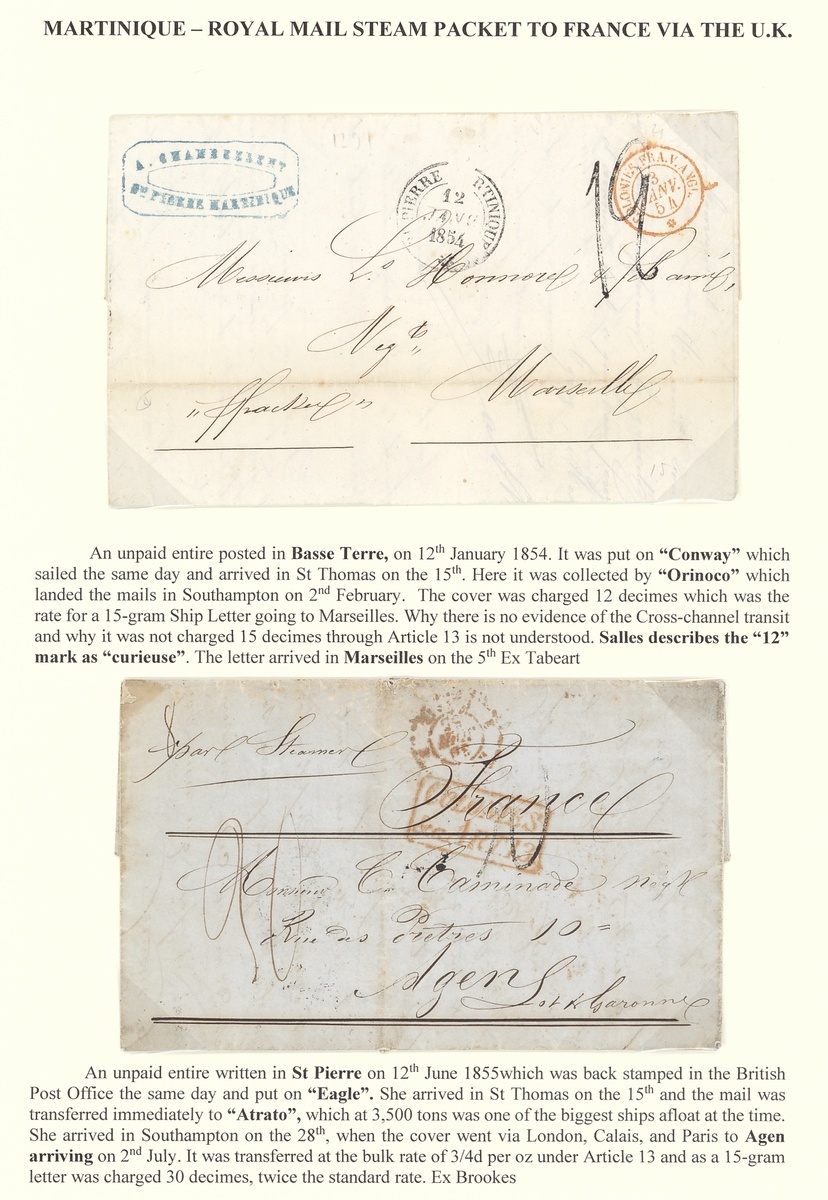 MARTINIQUE – ROYAL MAIL STEAM PACKET TO FRANCE VIA THE U.K.
A. CHAMBELLENT
St PIERRE MARTINIQUE
PIERRE RTINIQUE
12
JANV
1854
COLONIES FR.A.V.ANGL.
3
JANV.
54
12
Messieurs
Honnoré
Negts
"packet" Marseille
An unpaid entire posted in Basse Terre, on 12th January 1854. It was put on “Conway” which
sailed the same day and arrived in St Thomas on the 15th. Here it was collected by “Orinoco” which
landed the mails in Southampton on 2nd February. The cover was charged 12 decimes which was the
rate for a 15-gram Ship Letter going to Marseilles. Why there is no evidence of the Cross-channel transit
and why it was not charged 15 decimes through Article 13 is not understood. Salles describes the “12”
mark as “curieuse”. The letter arrived in Marseilles on the 5th Ex Tabeart
par Steamer
France
COLONIES
&c. ART.13
Monsieur C. Caminade
Rue des Prêtres 10
Agen
Lot & Garonne
An unpaid entire written in St Pierre on 12th June 1855which was back stamped in the British
Post Office the same day and put on “Eagle”. She arrived in St Thomas on the 15th and the mail was
transferred immediately to “Atrato”, which at 3,500 tons was one of the biggest ships afloat at the time.
She arrived in Southampton on the 28th, when the cover went via London, Calais, and Paris to Agen
arriving on 2nd July. It was transferred at the bulk rate of 3/4d per oz under Article 13 and as a 15-gram
letter was charged 30 decimes, twice the standard rate. Ex Brookes